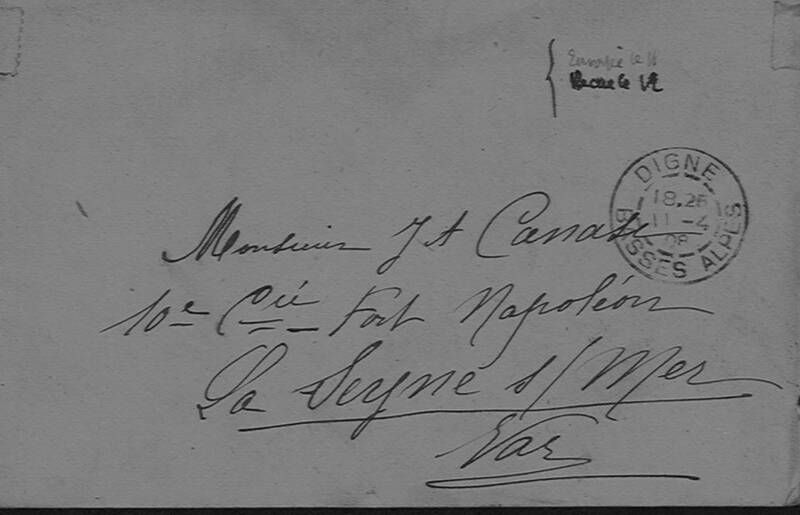 Envoyé le 11
Recue le 12
DIGNE
18.25
11 -4
08
BASSES ALPES
Monsieur J A
10e Cie Fort Napoléon
La Seyne s/Mer
Var